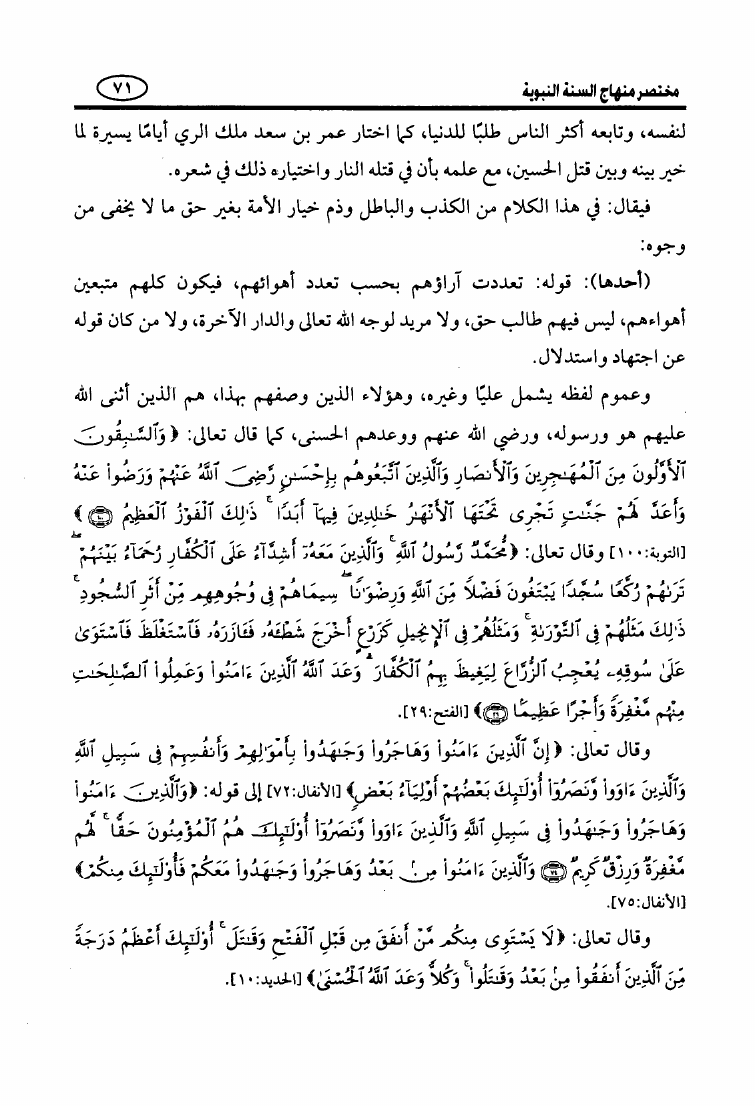 مختصر منهاج السنة النبوية
٧١
لنفسه، وتابعه أكثر الناس طلبًا للدنيا، كما اختار عمر بن سعد ملك الري أيامًا يسيرة لما
خير بينه وبين قتل الحسين، مع علمه بأن في قتله النار واختياره ذلك في شعره.
فيقال: في هذا الكلام من الكذب والباطل وذم خيار الأمة بغير حق ما لا يخفى من
وجوه:
(أحدها): قوله: تعددت آراؤهم بحسب تعدد أهوائهم، فيكون كلهم متبعين
أهواءهم، ليس فيهم طالب حق، ولا مريد لوجه الله تعالى والدار الآخرة، ولا من كان قوله
عن اجتهاد واستدلال.
وعموم لفظه يشمل عليًا وغيره، وهؤلاء الذين وصفهم بهذا، هم الذين أثنى الله
عليهم هو ورسوله، ورضي الله عنهم ووعدهم الحسنى، كما قال تعالى: ﴿وَٱلسَّٰبِقُونَ
ٱلْأَوَّلُونَ مِنَ ٱلْمُهَٰجِرِينَ وَٱلْأَنصَارِ وَٱلَّذِينَ ٱتَّبَعُوهُم بِإِحْسَٰنٍ رَّضِىَ ٱللَّهُ عَنْهُمْ وَرَضُوا۟ عَنْهُ
وَأَعَدَّ لَهُمْ جَنَّٰتٍ تَجْرِى تَحْتَهَا ٱلْأَنْهَٰرُ خَٰلِدِينَ فِيهَآ أَبَدًا ۚ ذَٰلِكَ ٱلْفَوْزُ ٱلْعَظِيمُ ﴿١٠٠﴾﴾
[التوبة:١٠٠] وقال تعالى: ﴿مُّحَمَّدٌ رَّسُولُ ٱللَّهِ ۚ وَٱلَّذِينَ مَعَهُۥٓ أَشِدَّآءُ عَلَى ٱلْكُفَّارِ رُحَمَآءُ بَيْنَهُمْ ۖ
تَرَىٰهُمْ رُكَّعًا سُجَّدًا يَبْتَغُونَ فَضْلًا مِّنَ ٱللَّهِ وَرِضْوَٰنًا ۖ سِيمَاهُمْ فِى وُجُوهِهِم مِّنْ أَثَرِ ٱلسُّجُودِ ۚ
ذَٰلِكَ مَثَلُهُمْ فِى ٱلتَّوْرَىٰةِ ۚ وَمَثَلُهُمْ فِى ٱلْإِنجِيلِ كَزَرْعٍ أَخْرَجَ شَطْـَٔهُۥ فَـَٔازَرَهُۥ فَٱسْتَغْلَظَ فَٱسْتَوَىٰ
عَلَىٰ سُوقِهِۦ يُعْجِبُ ٱلزُّرَّاعَ لِيَغِيظَ بِهِمُ ٱلْكُفَّارَ ۗ وَعَدَ ٱللَّهُ ٱلَّذِينَ ءَامَنُوا۟ وَعَمِلُوا۟ ٱلصَّٰلِحَٰتِ
مِنْهُم مَّغْفِرَةً وَأَجْرًا عَظِيمًۢا ﴿٢٩﴾﴾ [الفتح:٢٩].
وقال تعالى: ﴿إِنَّ ٱلَّذِينَ ءَامَنُوا۟ وَهَاجَرُوا۟ وَجَٰهَدُوا۟ بِأَمْوَٰلِهِمْ وَأَنفُسِهِمْ فِى سَبِيلِ ٱللَّهِ
وَٱلَّذِينَ ءَاوَوا۟ وَّنَصَرُوٓا۟ أُو۟لَٰٓئِكَ بَعْضُهُمْ أَوْلِيَآءُ بَعْضٍ﴾ [الأنفال:٧٢] إلى قوله: ﴿وَٱلَّذِينَ ءَامَنُوا۟
وَهَاجَرُوا۟ وَجَٰهَدُوا۟ فِى سَبِيلِ ٱللَّهِ وَٱلَّذِينَ ءَاوَوا۟ وَّنَصَرُوٓا۟ أُو۟لَٰٓئِكَ هُمُ ٱلْمُؤْمِنُونَ حَقًّا ۚ لَّهُم
مَّغْفِرَةٌ وَرِزْقٌ كَرِيمٌ ﴿٧٤﴾ وَٱلَّذِينَ ءَامَنُوا۟ مِنۢ بَعْدُ وَهَاجَرُوا۟ وَجَٰهَدُوا۟ مَعَكُمْ فَأُو۟لَٰٓئِكَ مِنكُمْ﴾
[الأنفال:٧٥].
وقال تعالى: ﴿لَا يَسْتَوِى مِنكُم مَّنْ أَنفَقَ مِن قَبْلِ ٱلْفَتْحِ وَقَٰتَلَ ۚ أُو۟لَٰٓئِكَ أَعْظَمُ دَرَجَةً
مِّنَ ٱلَّذِينَ أَنفَقُوا۟ مِنۢ بَعْدُ وَقَٰتَلُوا۟ ۚ وَكُلًّا وَعَدَ ٱللَّهُ ٱلْحُسْنَىٰ﴾ [الحديد:١٠].